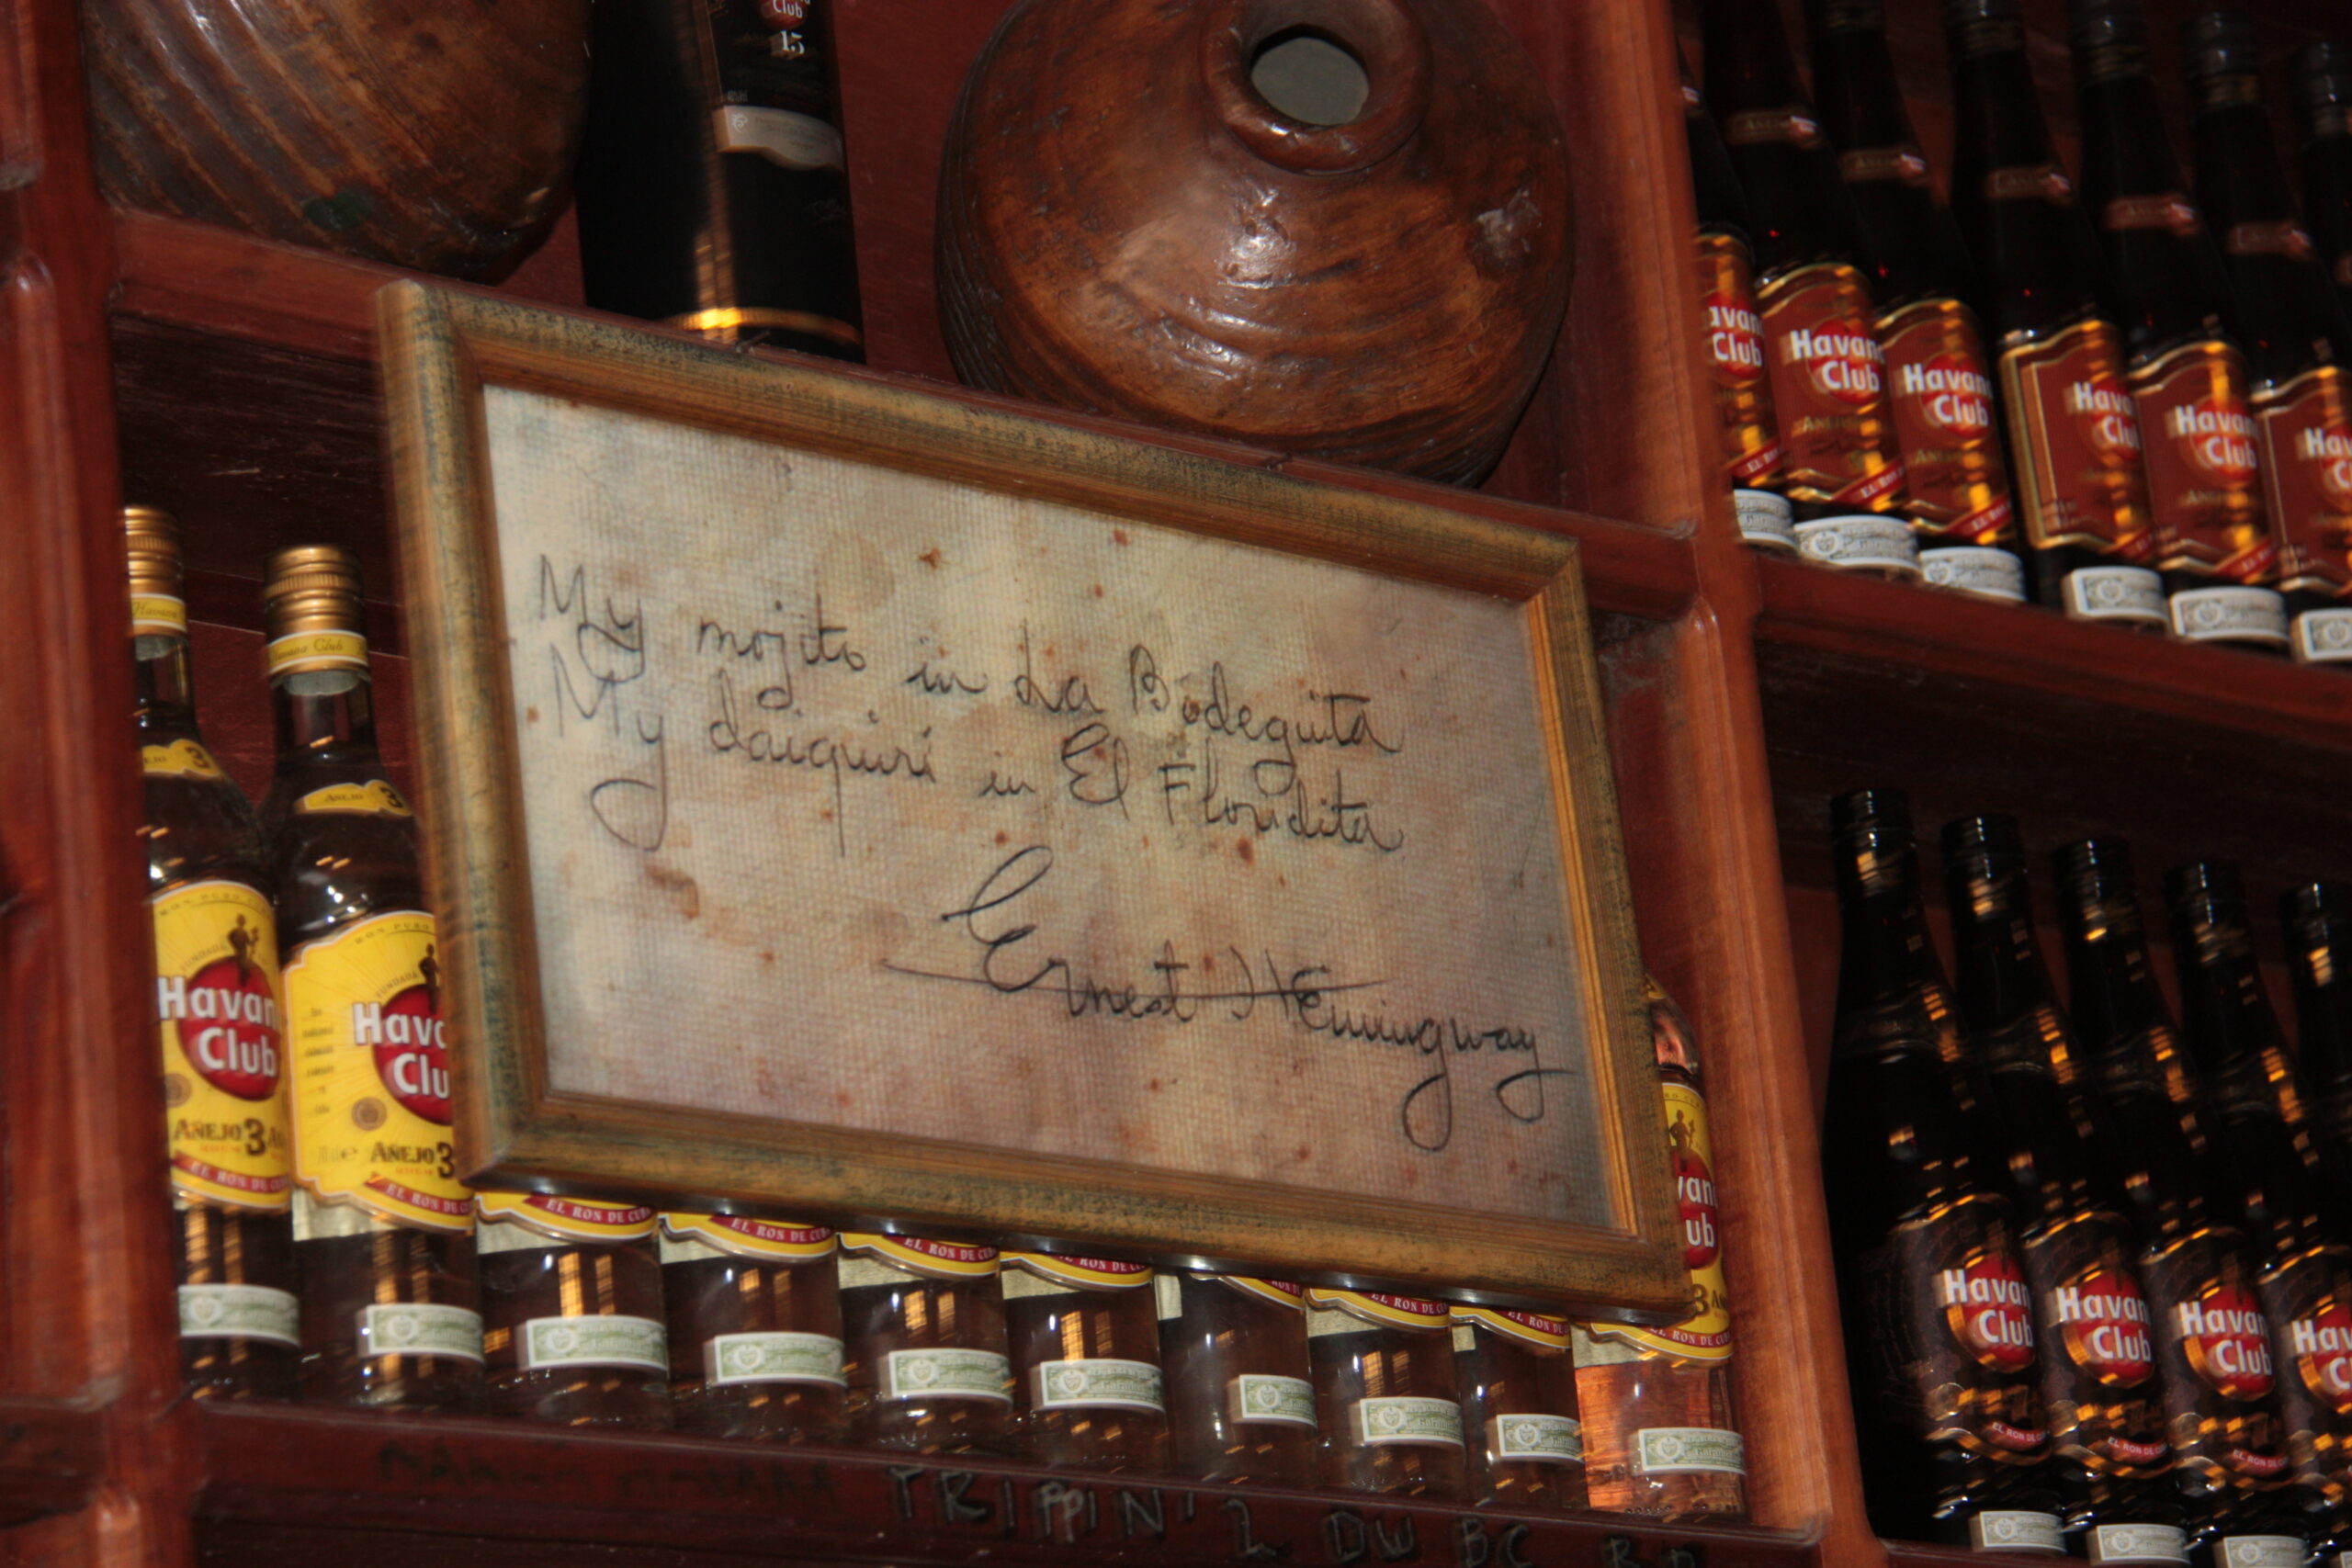 Club
15
Havana Club
Havana Club
Havan Club
Havana Club
Havana Club
My mojito in La Bodeguita
My daiquiri in El Floridita
Ernest Hemingway
AÑEJO 3
Havana
Club
AÑEJO 3 AÑ
EL RON DE CUBA
Havana
Club
AÑEJO 3
EL RON DE CUBA
EL RON DE CUBA
EL RON DE CUBA
EL RON DE CUBA
EL RON DE CUBA
EL RON DE CUBA
EL RON DE CUBA
Havana
Club
Havana
Club
Havana
Club
TRIPPIN' 2 DW BC